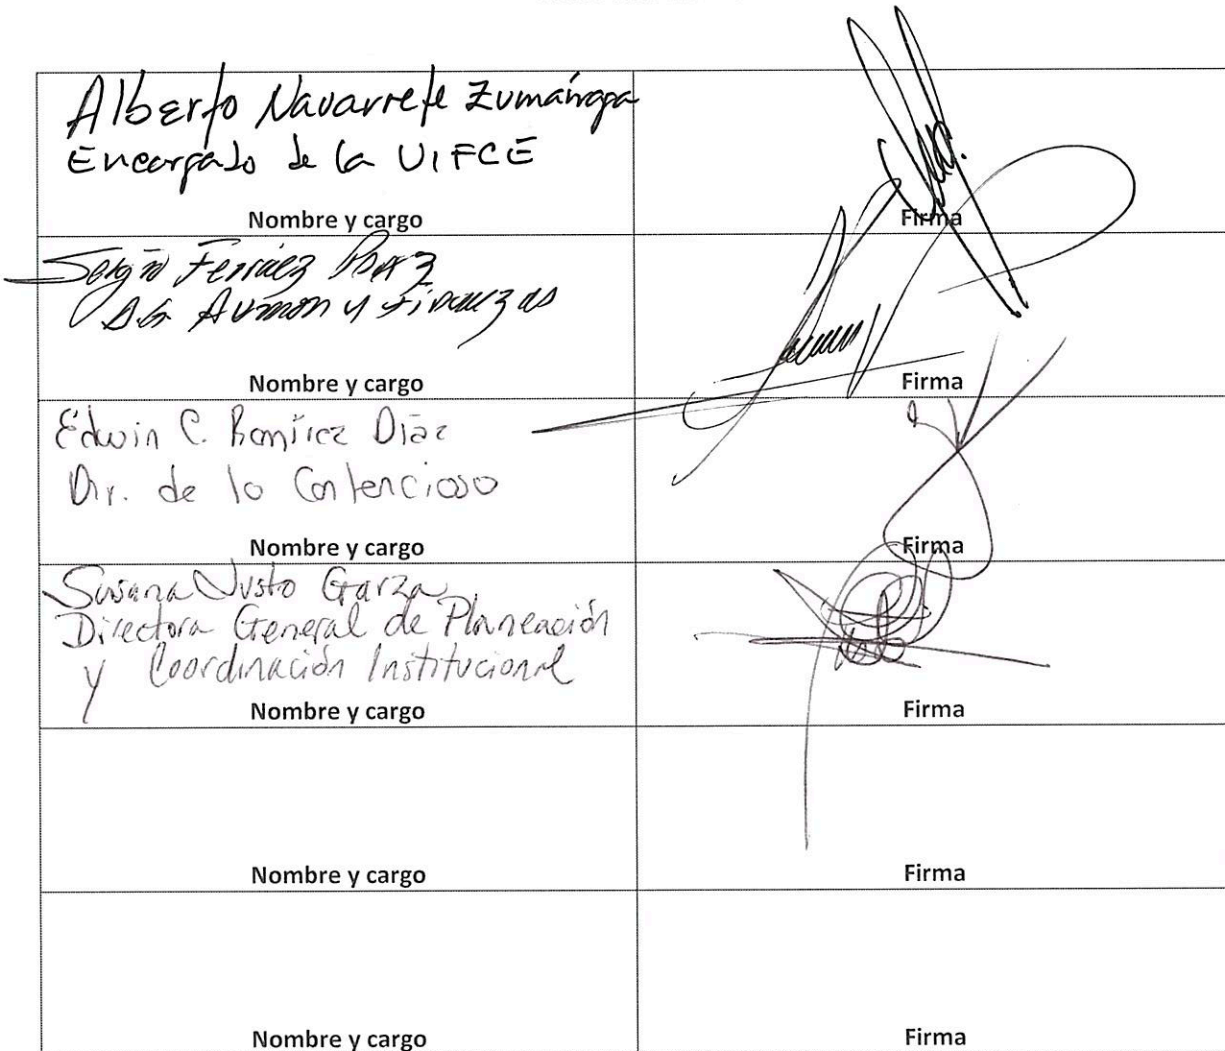 Alberto Navarrete Zumárraga
Encargado de la UIFCE
Nombre y cargo
Firma
Sergio Ferráez
D.G. Admon y Finanzas
Nombre y cargo
Firma
Edwin C. Ramírez Díaz
Dir. de lo Contencioso
Nombre y cargo
Firma
Susana Justo Garza
Directora General de Planeación
y Coordinación Institucional
Nombre y cargo
Firma
Nombre y cargo
Firma
Nombre y cargo
Firma